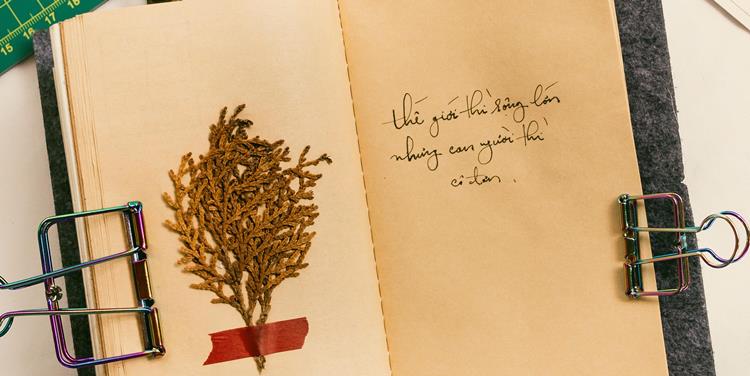 thế giới thì rộng lớn
nhưng con người thì
cô đơn.
15 16 17 18